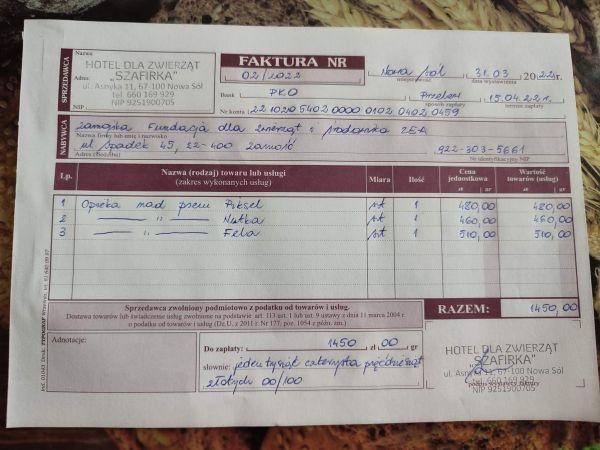 SPRZEDAWCA
Nazwa
HOTEL DLA ZWIERZĄT
„SZAFIRKA”
Adres:
ul. Asnyka 11, 67-100 Nowa Sól
tel. 660 169 929
NIP 9251900705
NIP
FAKTURA NR
02/2022
Nowa Sól 31.03 2022r.
miejscowość data wystawienia
Bank PKO Przelew 15.04.22r.
sposób zapłaty termin zapłaty
Nr konta 22 1020 5402 0000 0102 0402 0459
NABYWCA
Zamojska Fundacja dla zwierząt i środowiska ZEA
Nazwa firmy lub imię i nazwisko
ul. Spadek 45, 22-400 Zamość 922-303-5661
Adres (siedziba) Nr identyfikacyjny NIP
Lp. Nazwa (rodzaj) towaru lub usługi Miara Ilość Cena jednostkowa Wartość towarów (usług)
(zakres wykonanych usług) zł gr zł gr
1 Opieka nad psem Piksel szt 1 480,00 480,00
2 — " — " — Nutka szt 1 460,00 460,00
3 — " — " — Fela szt 1 510,00 510,00
Sprzedawca zwolniony podmiotowo z podatku od towarów i usług.
Dostawa towarów lub świadczenie usług zwolnione na podstawie: art. 113 ust. 1 lub ust. 9 ustawy z dnia 11 marca 2004 r.
o podatku od towarów i usług (Dz.U. z 2011 r. Nr 177, poz. 1054 z późn. zm.)
RAZEM: 1450,00
Adnotacje:
Do zapłaty: 1450 zł ,00 gr
słownie: jeden tysiąc czterysta pięćdziesiąt
złotych 00/100
HOTEL DLA ZWIERZĄT
„SZAFIRKA”
ul. Asnyka 11, 67-100 Nowa Sól
tel. 660 169 929
podpis wystawcy faktury
NIP 9251900705